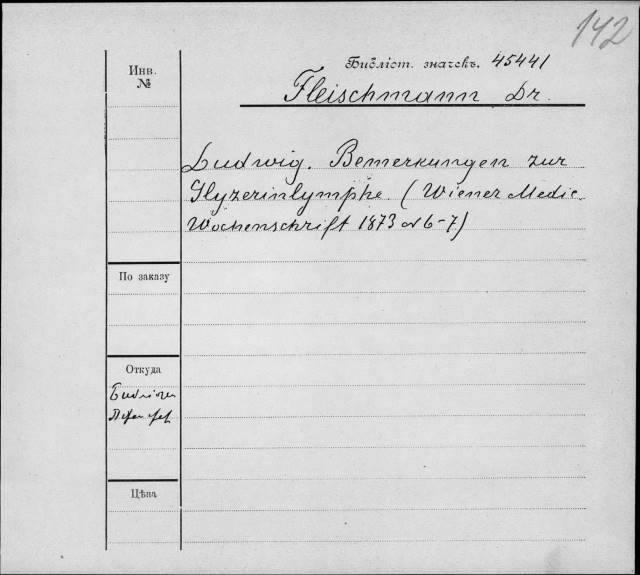 142
Инв. №
Библіот. значекъ. 45441
Fleischmann Dr.
Ludwig. Bemerkungen zur
Glyzerinlymphe. (Wiener Medic.
Wochenschrift 1873 № 6-7)
По заказу
Откуда
Цѣна